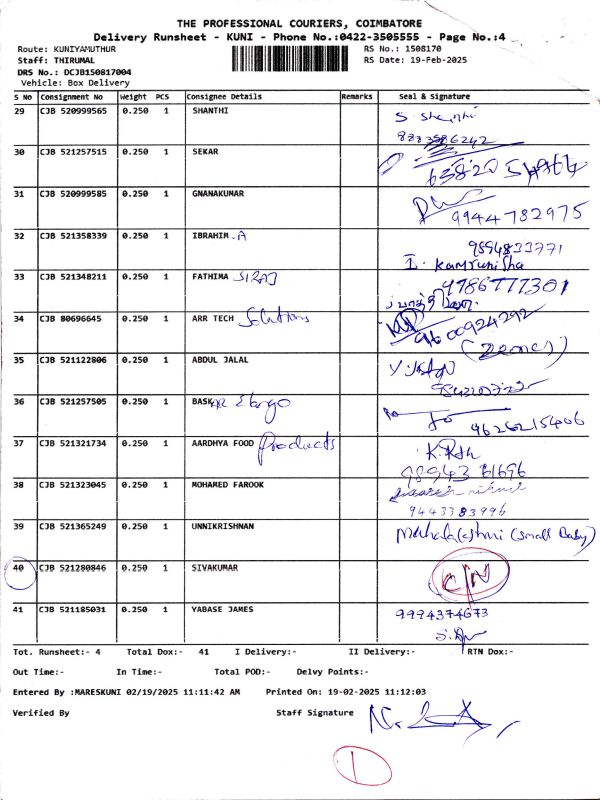 THE PROFESSIONAL COURIERS, COIMBATORE
Delivery Runsheet - KUNI - Phone No.:0422-3505555 - Page No.:4
Route: KUNIYAMUTHUR RS No.: 1508170
Staff: THIRUMAL RS Date: 19-Feb-2025
DRS No.: DCJB150817004
Vehicle: Box Delivery
S No Consignment No Weight PCS Consignee Details Remarks Seal & Signature
29 CJB 520999565 0.250 1 SHANTHI S Shanthi
8883586242
30 CJB 521257515 0.250 1 SEKAR
63820
31 CJB 520999585 0.250 1 GNANAKUMAR
9944782975
32 CJB 521358339 0.250 1 IBRAHIM .A 9894833771
I. Kamrunisha
33 CJB 521348211 0.250 1 FATHIMA SIRAJ 9786777301
34 CJB 80696645 0.250 1 ARR TECH Solutions 9600924292
35 CJB 521122806 0.250 1 ABDUL JALAL
36 CJB 521257505 0.250 1 BASKAR
9626215406
37 CJB 521321734 0.250 1 AARDHYA FOOD Products
98943 61696
38 CJB 521323045 0.250 1 MOHAMED FAROOK
9443383996
39 CJB 521365249 0.250 1 UNNIKRISHNAN Mahalakshmi (small Baby)
40 CJB 521280846 0.250 1 SIVAKUMAR C/N
41 CJB 521185031 0.250 1 YABASE JAMES 9994374673
Tot. Runsheet:- 4 Total Dox:- 41 I Delivery:- II Delivery:- RTN Dox:-
Out Time:- In Time:- Total POD:- Delvy Points:-
Entered By :MARESKUNI 02/19/2025 11:11:42 AM Printed On: 19-02-2025 11:12:03
Verified By Staff Signature
1